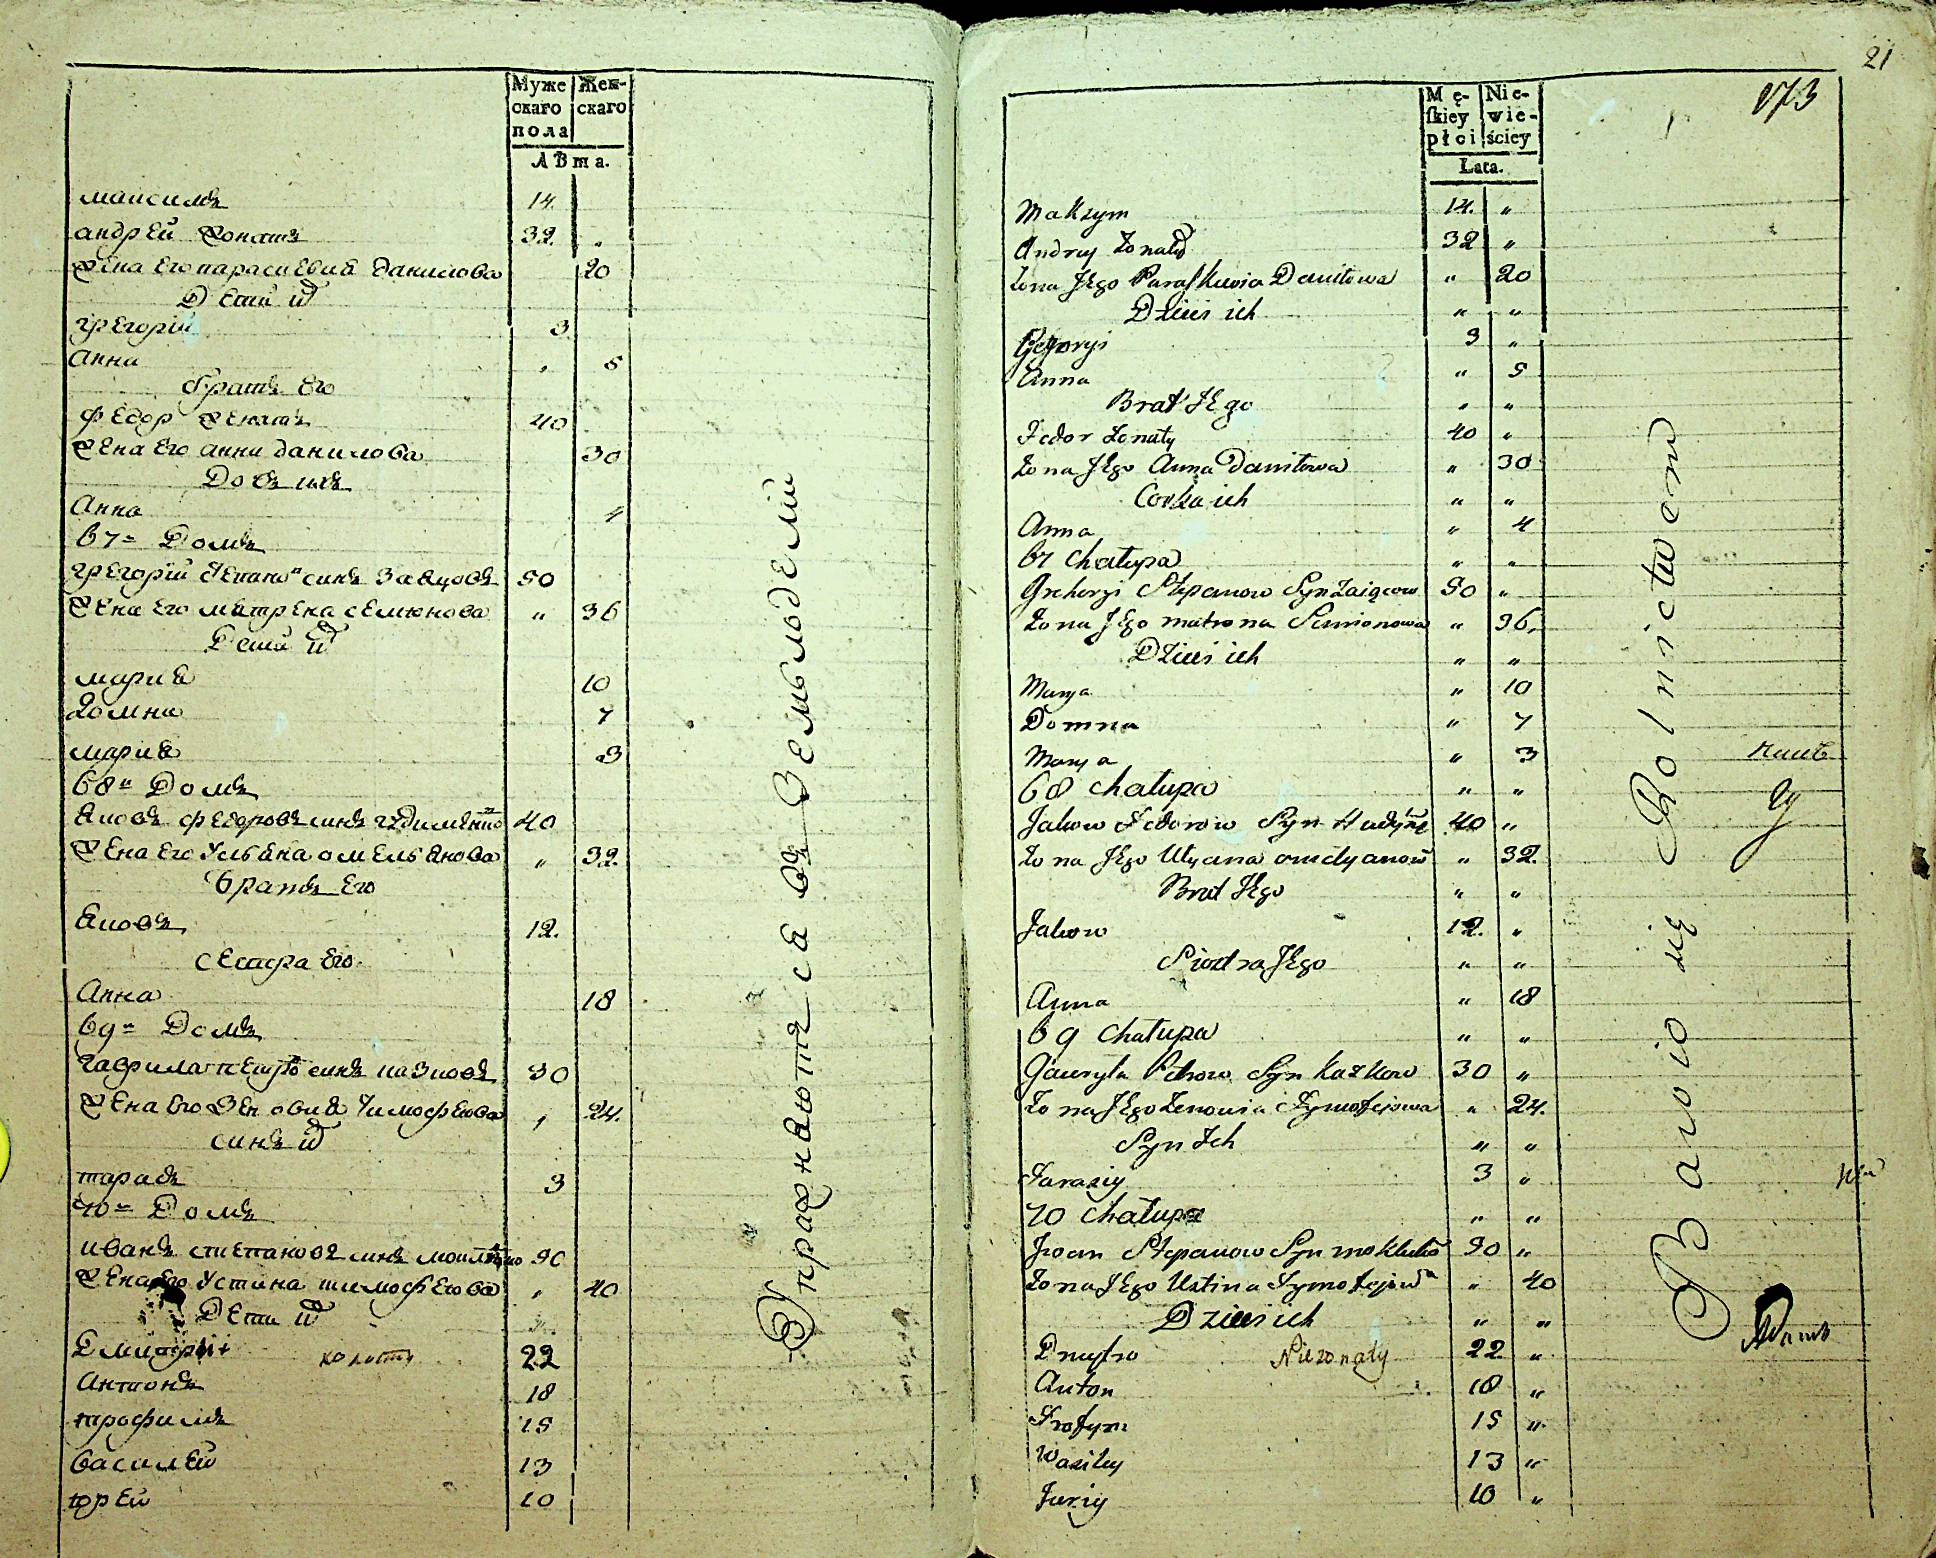 Муже
скаго
пола
Жен-
скаго
Лѣта.
максимъ 14.
андрей Жонатъ 32. „
Жена Его параскевия данилова 20
Дети их
григорій 3.
Анна „ 5
братъ Его
федор Женатъ 40
Жена Его анна данилова 30
Дочь ихъ
Анна 4
67= Домъ
григорій Степано синъ Заяцовъ 50
Жена Его матрена семионова „ 36
Дети их
мария 10
Домна 7
мария 3
68" Домъ
Яковъ федоровъ синъ 40
Жена Его Ульяна омельянова „ 32.
братъ Его
Яковъ 12.
сестра Его.
Анна 18
69= Домъ
гаврила петро синъ казковъ 30
Жена Его Зеновия Тимофеева „ 24.
синъ их
тарасъ 3
70= Домъ
иванъ степановъ синъ 50
Жена Его Устина тимофеева „ 40
Дети их
Дмитрій 22
Антонъ 18
трофимъ 15
василей 13
юрей 10
Упражняются въ Земльоделіи
21
Mę-
ſkiey
płci
Nie-
wie-
ściey
Lata.
173
Maksym 14. „
Andrey Żonaty 32 „
Żona Jego Paraſkiewia Daniłowa „ 20
Dzieci ich „ „
Gregoryi 3 „
Anna „ 5
Brat Jego „ „
Fedor Żonaty 40 „
Żona Jego Anna Daniłowa „ 30
Corka ich „ „
Anna „ 4
67 Chałupa „ „
Grehoryi Stepanow Syn Zaiącow 50 „
Żona Jego matrona Simionowa „ 36.
Dzieci ich „ „
Marya „ 10
Domna „ 7
Marya „ 3
68 Chałupa „ „
Jakow Fedorow Syn 40 „
Żona Jego Ulyana omelyanow „ 32.
Brat Jego „ „
Jakow 12. „
Siostra Jego „ „
Anna „ 18
69 Chałupa „ „
Gawryła Petrow Syn Kazkow 30 „
Żona Jego Zenowia Tymofejowa „ 24.
Syn Ich „ „
Tarasiy 3 „
70 Chałupa „ „
Iwan Stepanow Syn 50 „
Żona Jego Ustina Tymofejowa „ 40
Dzieci ich „ „
Dmytro Nieżonaty 22 „
Anton 18 „
Trofym 15 „
Wasiley 13 „
Juriy 10 „
Bawio się Rolnictwem